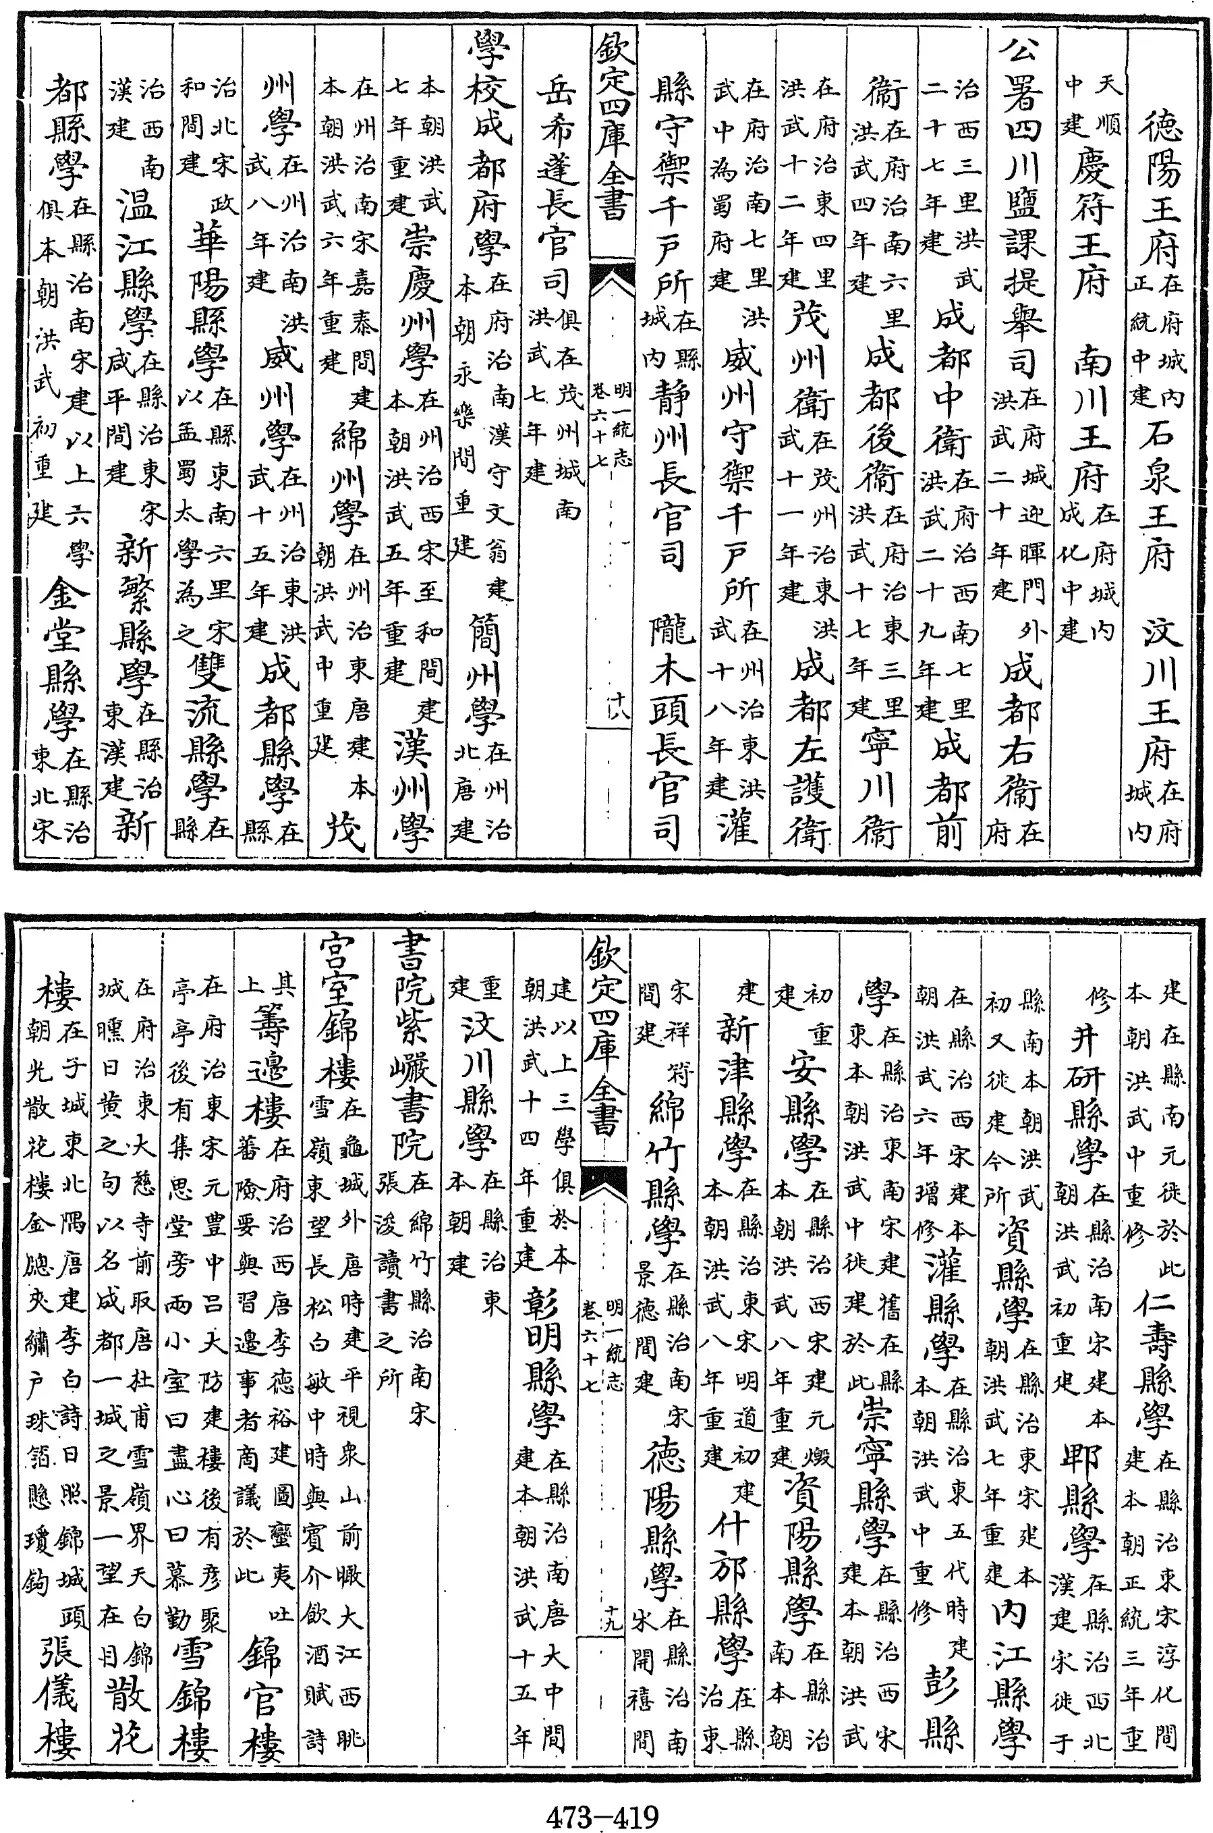 德陽王府在府城内正統中建石泉王府　汶川王府在府城内
天順中建慶符王府　南川王府在府城内成化中建
公署四川鹽課提舉司在府城迎暉門外洪武二十年建成都右衞在府
治西三里洪武二十七年建成都中衞在府治西南七里洪武二十九年建成都前
衞在府治南六里洪武四年建成都後衞在府治東三里洪武十七年建寧川衞
在府治東四里洪武十二年建茂州衞在茂州治東洪武十一年建成都左護衞
在府治南七里洪武中為蜀府建威州守禦千戸所在州治東洪武十八年建灌
縣守禦千戸所在縣城内靜州長官司　隴木頭長官司
欽定四庫全書　明一統志卷六十七　十八
岳希蓬長官司俱在茂州城南洪武七年建
學校成都府學在府治南漢守文翁建本朝永樂間重建簡州學在州治北唐建
本朝洪武七年重建崇慶州學在州治西宋至和間建本朝洪武五年重建漢州學
在州治南宋嘉泰間建本朝洪武六年重建綿州學在州治東唐建本朝洪武中重建茂
州學在州治南洪武八年建威州學在州治東洪武十五年建成都縣學在縣
治北宋政和間建華陽縣學在縣東南六里宋以孟蜀太學為之雙流縣學在縣
治西南漢建温江縣學在縣治東宋咸平間建新繁縣學在縣治東漢建新
都縣學在縣治南宋建以上六學俱本朝洪武初重建金堂縣學在縣治東北宋
建在縣南元徙於此本朝洪武中重修仁壽縣學在縣治東宋淳化間建本朝正統三年重
修井研縣學在縣治南宋建本朝洪武初重建郫縣學在縣治西北漢建宋徙于
縣南本朝洪武初又徙建今所資縣學在縣治東宋建本朝洪武七年重建内江縣學
在縣治西宋建本朝洪武六年增修灌縣學在縣治東五代時建本朝洪武中重修彭縣
學在縣治東南宋建舊在縣東本朝洪武中徙建於此崇寧縣學在縣治西宋建本朝洪武
初重建安縣學在縣治西宋建元燬本朝洪武八年重建資陽縣學在縣治南本朝
建新津縣學在縣治東宋明道初建本朝洪武八年重建什邡縣學在縣治東
宋祥符間建綿竹縣學在縣治南宋景德間建德陽縣學在縣治南宋開禧間
欽定四庫全書　明一統志卷六十七　十九
建以上三學俱於本朝洪武十四年重建彰明縣學在縣治南唐大中間建本朝洪武十五年
重建汶川縣學在縣治東本朝建
書院紫巖書院在綿竹縣治南宋張浚讀書之所
宮室錦樓在龜城外唐時建平視衆山前瞰大江西眺雪嶺東望長松白敏中時與賓介飲酒賦詩
其上籌邊樓在府治西唐李德裕建圖蠻夷吐蕃險要與習邊事者商議於此錦官樓
在府治東宋元豐中呂大防建樓後有彦聚亭亭後有集思堂旁兩小室曰盡心曰慕勤雪錦樓
在府治東大慈寺前取唐杜甫雪嶺界天白錦城曛日黄之句以名成都一城之景一望在目散花
樓在子城東北隅唐建李白詩日照錦城頭朝光散花樓金牕夾繡戸珠箔懸瓊鉤張儀樓
473-419